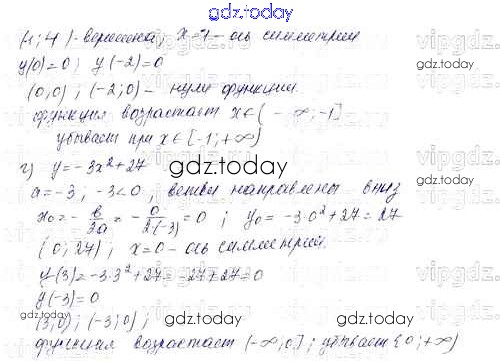 gdz.today
(-1; 4) - вершина, x=-1 - ось симметрии
y(0)=0; y(-2)=0
(0,0); (-2;0) - нули функции.
функция возрастает x∈(-∞;-1]
убывает при x∈[-1;+∞)
г) y=-3x²+27
gdz.today
a=-3; -3<0, ветви направлены вниз
x₀=-в/2a=-0/2(-3)=0; y₀=-3·0²+27=27
(0;27); x=0 - ось симметрии.
y(3)=-3·3²+27=-27+27=0
y(-3)=0
(3;0); (-3;0);
функция возрастает (-∞;0]; убывает [0;+∞)
gdz.today
gdz.today
gdz.today
gdz.today
gdz.today